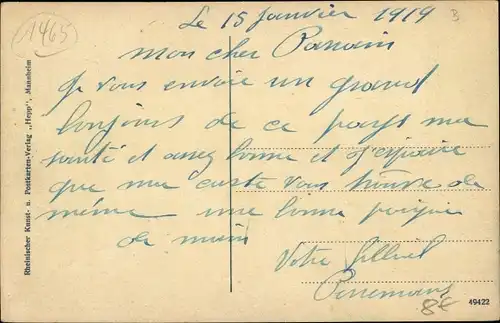 1465
Le 15 Janvier 1919
B
Mon cher Parrain
Je vous envoie un grand
bonjours de ce pays ma
santé et assez bonne et j'espaire
que ma carte vous trouve de
même une bonne poigné
de main
Votre filleul
8€
Rheinischer Kunst- u. Postkarten-Verlag „Hepp", Mannheim
49422